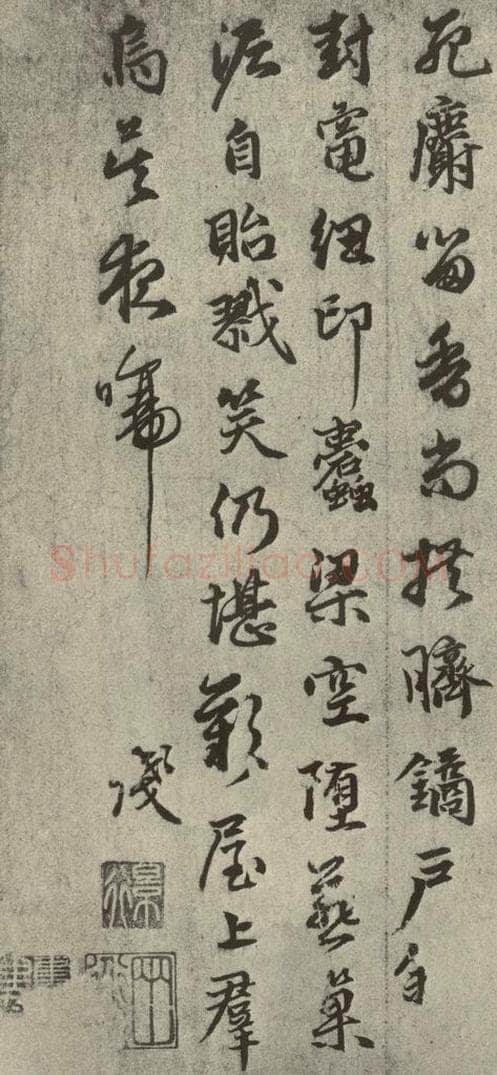 死麝留香尚臍鐍戶自
封紐印蠹梁空墮燕巢
泥自貽戮笑仍堪歎屋上羣
烏莫夜啼
Shufaziliao.COM